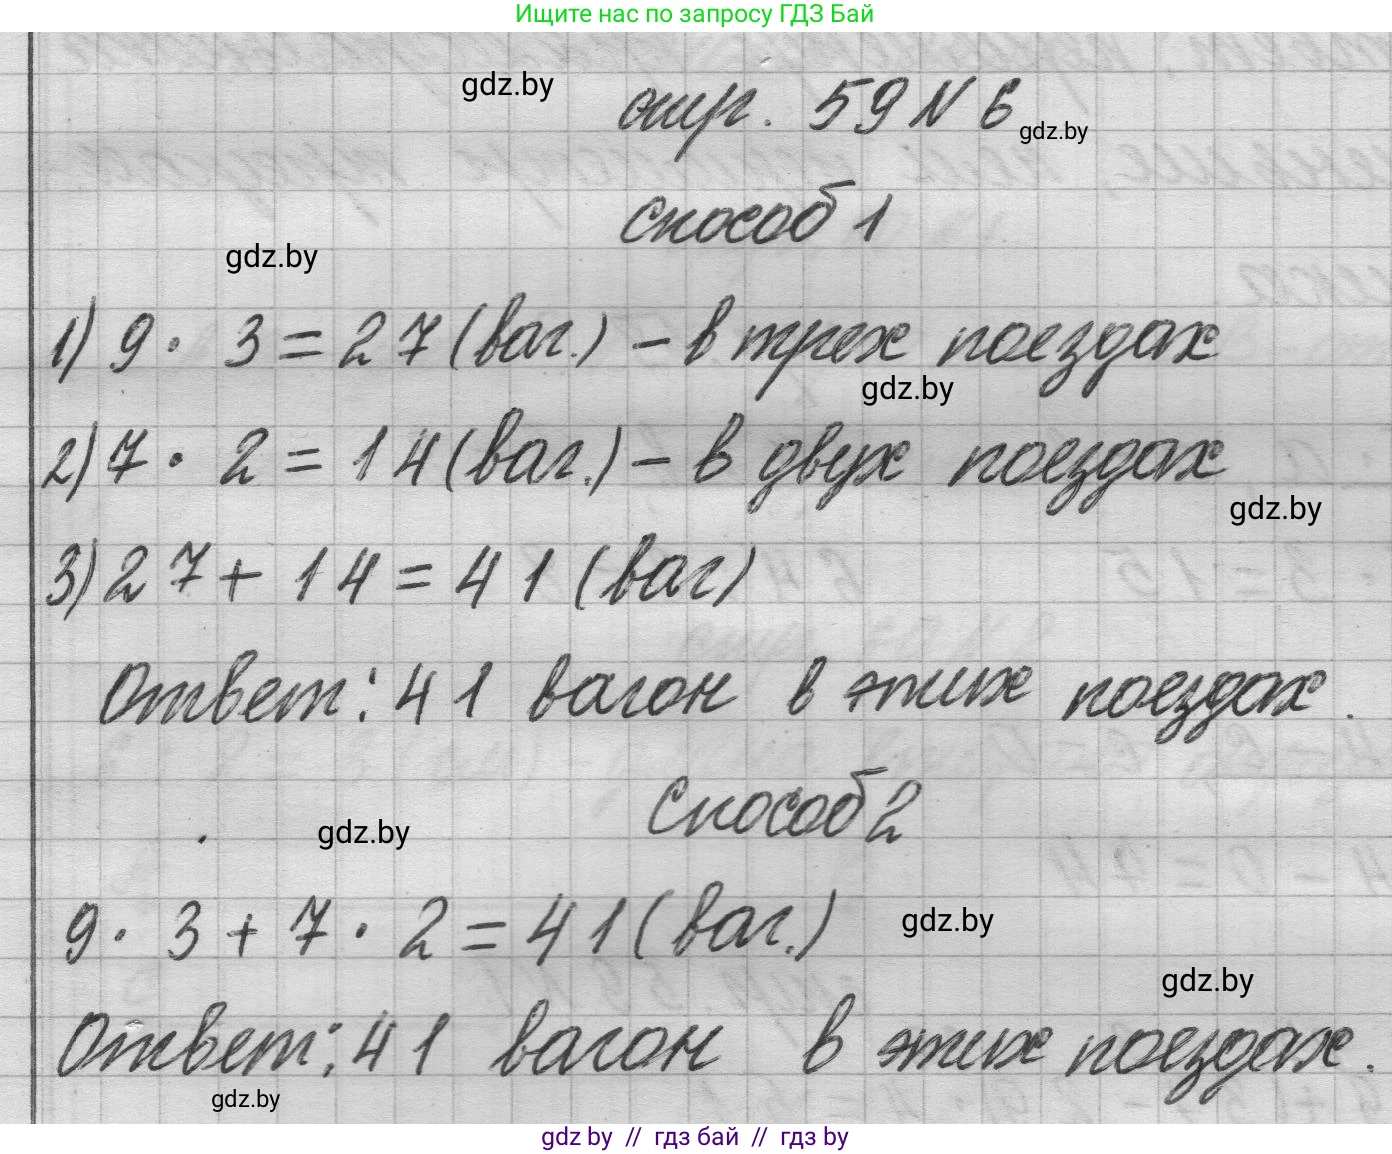 Ищите нас по запросу ГДЗ Бай
gdz.by
стр. 59 N 6
gdz.by
Способ 1
gdz.by
1) 9 · 3 = 27 (ваг.) – в трех поездах
gdz.by
2) 7 · 2 = 14 (ваг.) – в двух поездах
gdz.by
3) 27 + 14 = 41 (ваг)
Ответ: 41 вагон в этих поездах.
Способ 2
gdz.by
9 · 3 + 7 · 2 = 41 (ваг.)
gdz.by
gdz.by
Ответ: 41 вагон в этих поездах.
gdz.by
gdz by // гдз бай // гдз by